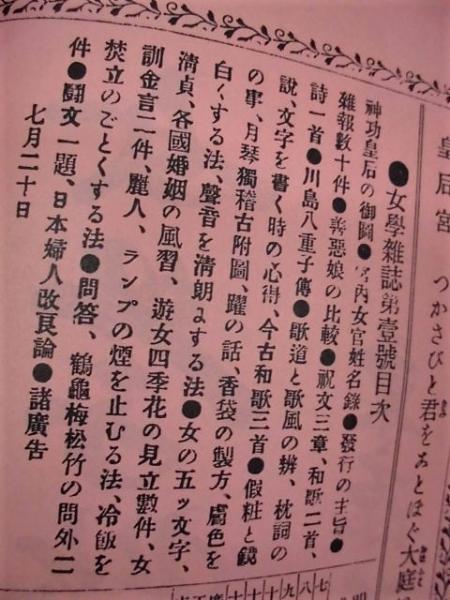 皇后宮 つかさびと君をことほぐ大庭
●女學雜誌第壹號目次
神功皇后の御圖●宮內女官姓名錄●發行の主旨●
雜報數十件●善惡娘の比較●祝文三章、和歌二首、
詩一首●川島八重子傳●歌道と歌風の辨、枕詞の
說、文字を書く時の心得、今古和歌三首●假粧と鏡
の事、月琴獨稽古附圖、躍の話、香袋の製方、膚色を
白くする法、聲音を淸朗にする法●女の五ッ文字、
淸貞、各國婚姻の風習、遊女四季花の見立數件、女
訓金言二件、麗人、ランプの煙を止むる法、冷飯を
焚立のごとくする法●問答、鶴龜梅松竹の問外二
件●鬪文一題、日本婦人改良論●諸廣告
七月二十日